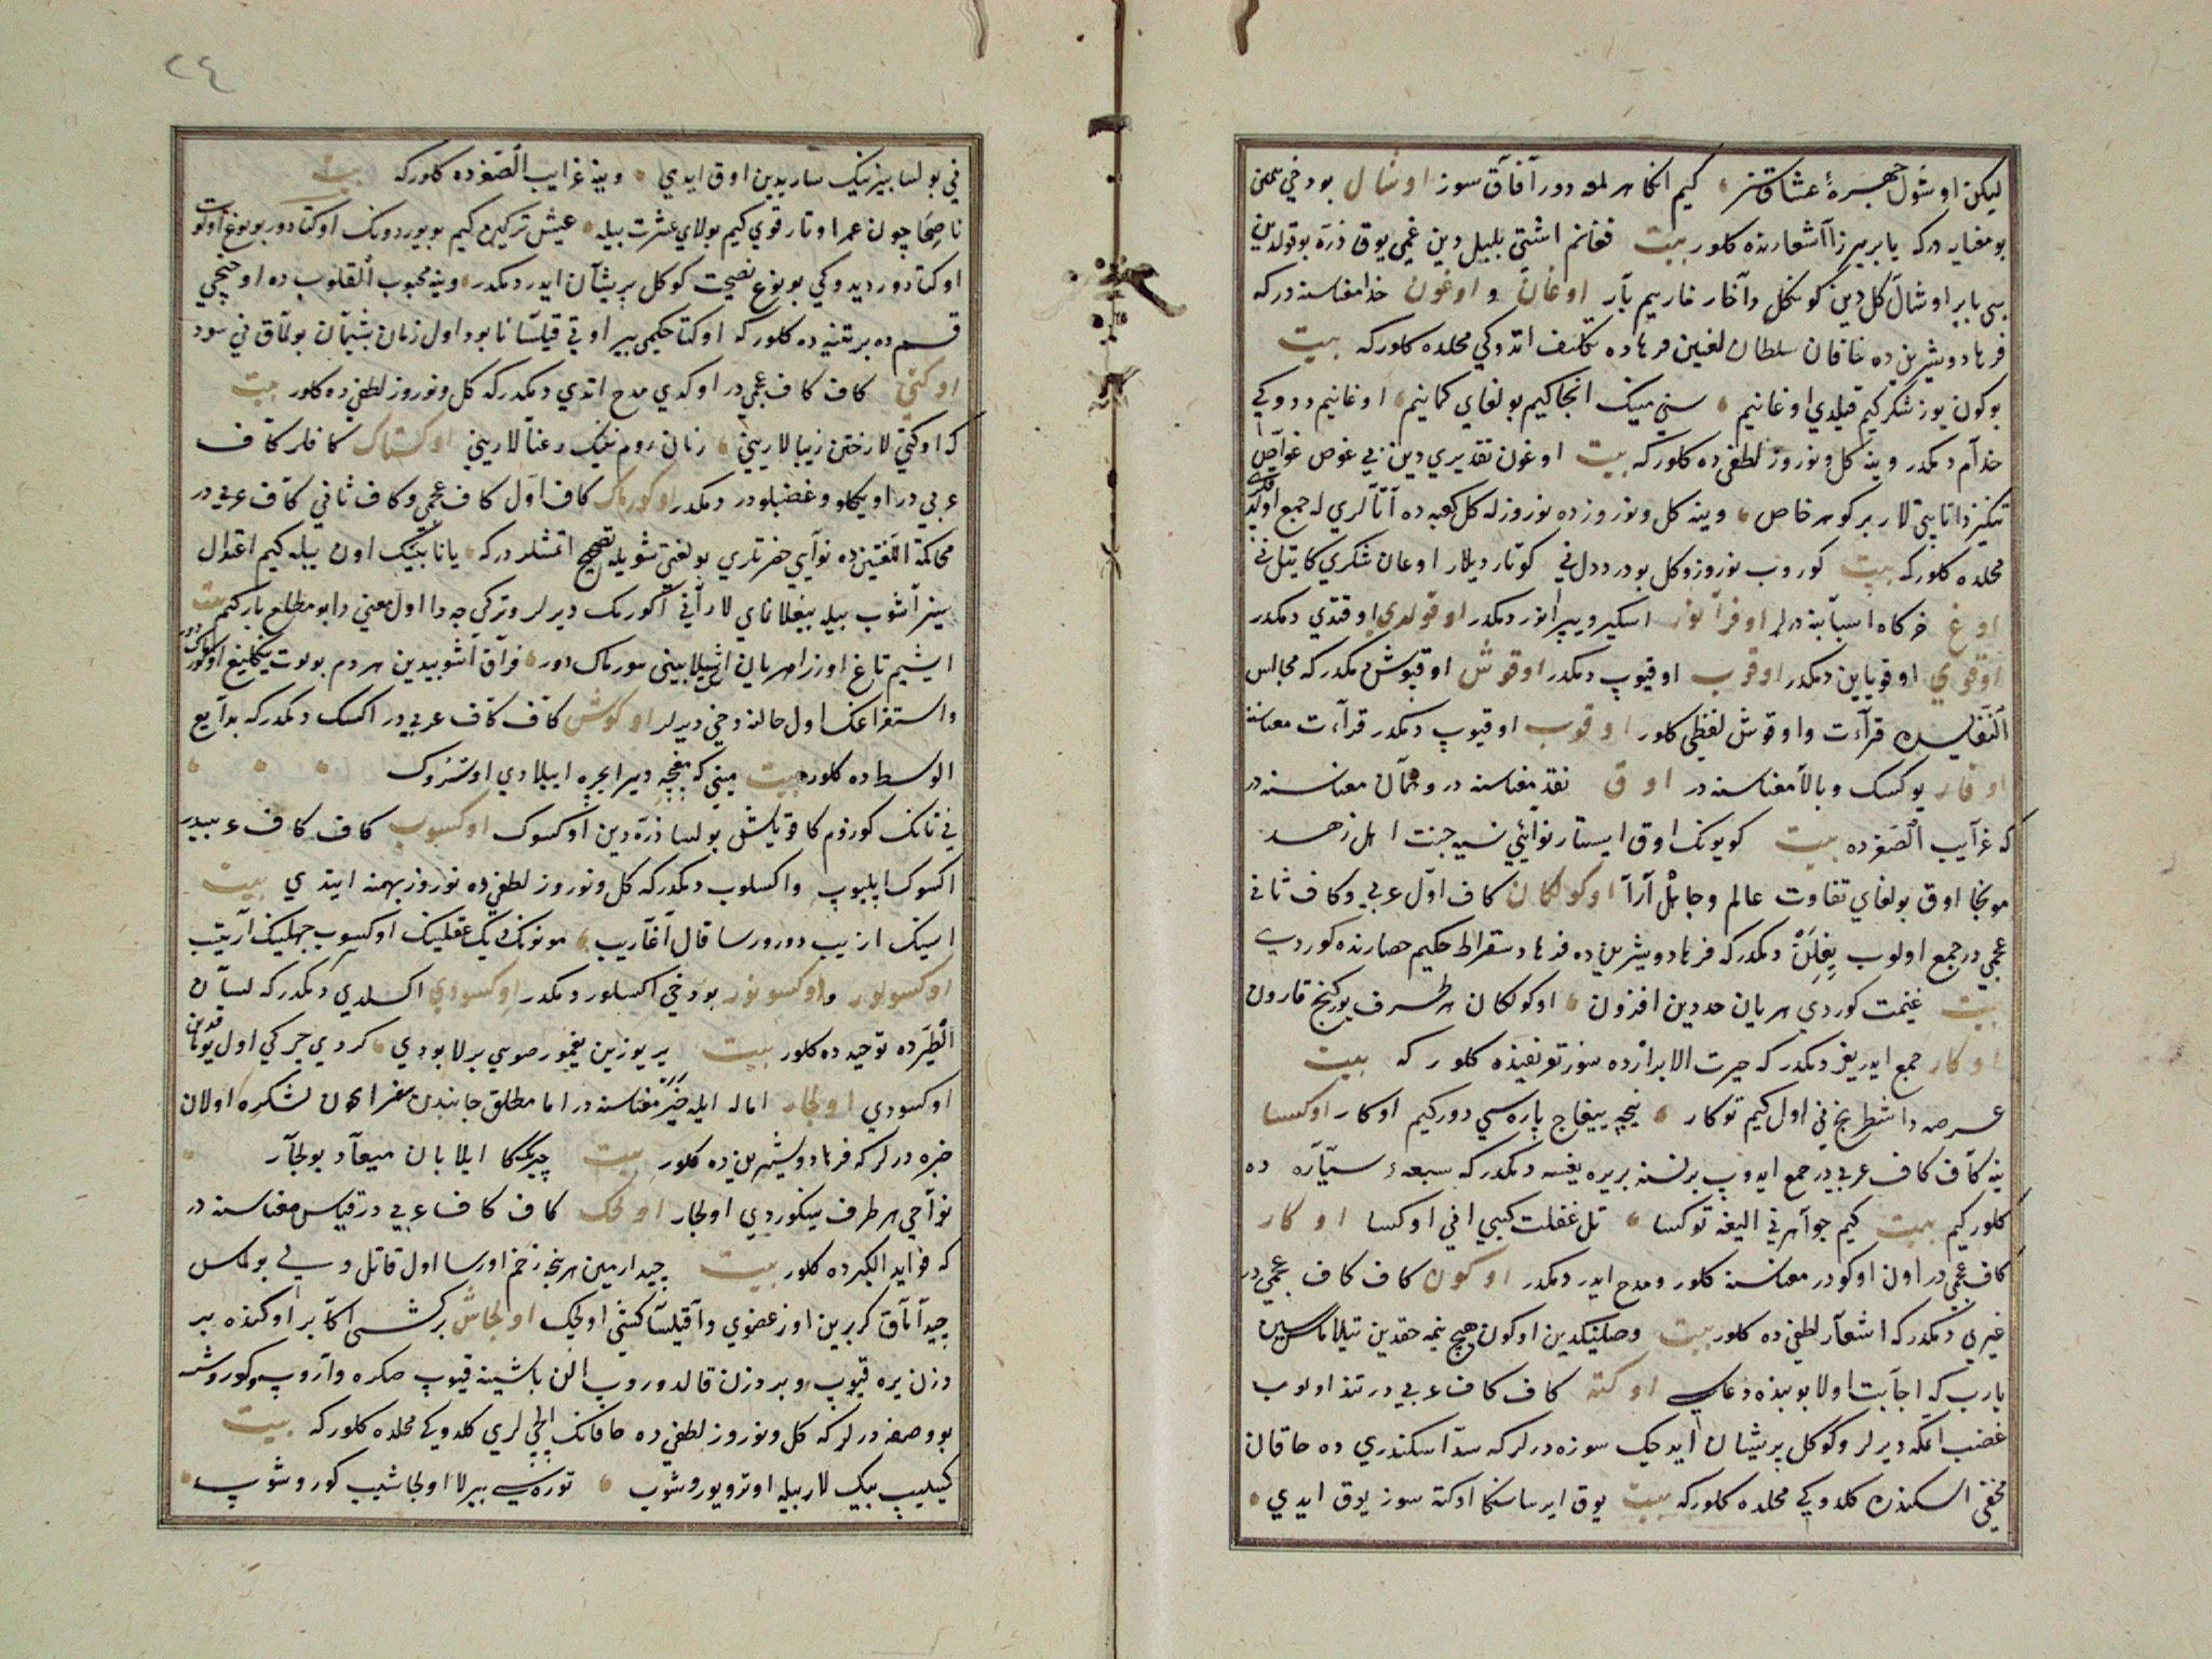 لیکن اوشول چهرهٔ عشاق تنر کیم انکا هر لمه دور آفاق سوز اوشال بو دخی همین
بو معنایه در که بابر میرزا آشعارنده کلور بیت فغانم اشتی بلبل دین غمی یوق ذره بو قولدین
بی بابر اوشال کل دین کونکل دا آخار خاریم بار اوغان و اوغون خدا معناسنه در که
فرهاد و شیرین ده خاقان سلطان لغین فرهاد ه تکلیف اتدوکی محلده کلور که بیت
بو کون یوز شکر کیم قیلدی اوغانیم سنی مینک انجا کیم بولغای کمانیم اوغانیم ددوکی
خدآم دیمکدر وینه کل و نوروز لطفی ده کلور که بیت اوغون تقدیری دین بی غوص غواص
تنکیز دا تاپتی لار بر کوهر خاص وینه کل و نوروز ده نوروزله کل کعبه ده آتالری له جمع اولدوقلری
محلده کلور که بیت کوروب نوروز و کل بو درددل نی کوتاردیلار اوغان شکری کا تیل نی
اوغ خرکاه اسبابنه درلر اوفرانور اسکیر و یپرانور دیمکدر اوقولدی اوقندی دیمکدر
اوقوی اوقویاین دیمکدر اوقوب اوقیوب دیمکدر اوقوش اوقیوش دیمکدر که مجالس
النفایسده قرآءت واوقوش لفظی کلور اوقوب اوقیوب دیمکدر قرآءت معناسنه
اوقار یوکسک و بالا معناسنه در اوق نقد معناسنه در و همان معناسنه در
که غرآیب الصغرده بیت کویونک اوق ایستار نوائی نسیه جنت اهل زهد
مونجا اوق بولغای تفاوت عالم و جاهل آرا اوکولکان کاف اول عربی و کاف ثانی
عجمی در جمع اولوب ییغلن دیمکدر که فرهاد و شیرین ده فرهاد سقراط حکیم حصارنده کوردی
بیت غنیمت کوردی هر یان حددین افزون اوکولکان هر طرف یوز کنج قارون
اوکار جمع ایدر ییغر دیمکدر که حیرت الابرارده سوز تعریفینده کلور که بیت
عرصه دا شطرنج نی اول کیم توکار نیچه ییغاج پاره سی دور کیم اوکار اوکسا
ینه کاف کاف عربی در جمع ایدوپ بر نسنه بریره ییغسه دیمکدر که سبعهٔ سیّاره ده
کلور کیم بیت کیم جواهرنی الیغه توکسا تل غفلت کیبی انی اوکسا اوکار
کاف عجمی در اون اوکودر معناسنه کلور و مدح ایدر دیمکدر اوکون کاف کاف عجمی در
غیری دیمکدر که اشعار لطفی ده کلور بیت وصلینکدین اوکون هیچ نیمه حقدین تیلاماسمین
یارب که اجابت اولا بو بنده دعاسی اوکته کاف کاف عربی در تند اولوب
غضب اتمکه دیرلر و کوکل پریشان ایدجک سوزه درلر که سد اسکندری ده خاقان
مخفی اسکندره کلدوکی محلده کلور که بیت یوق ایرسا سنکا اوکته سوز یوق ایدی
٢٤
نی بولسا بیزنیک ساریدین اوق ایدی وینه غرایب الصغرده کلور که بیت
ناصحا چون عمر اوتار قوی کیم بولای عشرت بیله عیش ترکین کیم بویوردونک اوکتادور بو نوع اوکوت
اوکتادور دیدوکی بو نوع نصیحت کوکل پریشان ایدر دیمکدر وینه محبوب القلوب ده اوچنجی
قسمده بر تنبیه ده کلور که اوکتا حکیمی بیر اوقی قیلسا نابود اول زمان پشیمان بولماق نی سود
اوکتی کاف کاف عجمی در اوکدی مدح اتدی دیمکدر که کل و نوروز لطفی ده کلور بیت
که اوکتی لار ختن زیبالارینی زنان روم نینک رعنالارینی اوکتاماک کافلر کاف
عربی در اویکلو و غضبلودر دیمکدر اوکورماک کاف اول کاف عجمی و کاف ثانی کاف عربی در
محاکمة اللغتین ده نوایی حضرتلری بو لغتی شویله تصحیح اتمشلردر که یانا بیک اون بیله کیم اعتدال
سیز آشوب بیله ییغلاغای لار آنی اوکورماک دیرلر و ترکی چه دا اول معنی دا بو مطلع بار کیم بیت
ایشیم تاغ اوزرا هر یان اشکیلا بینی سورماک دور فراق آشوبیدین هر دم بولوت ینکلیغ اوکورماک دور
و استفراغ اول حالنه دخی دیرلر اوکوش کاف کاف عربی در اکسک دیمکدر که بدایع
الوسط ده کلور بیت مینی که مغبچه دیر ایجره اییلادی اوسروک
نی تانک کوزوم کا قویاش بولسا ذره دین اوکسوک اوکسوب کاف کاف عربیدر
اکسوک ایلیوب و اکسلوب دیمکدر که کل و نوروز لطفی ده نوروز بهمنه ایتدی بیت
اوکسولور و اوکسونور بو دخی اکسلور دیمکدر اوکسودی اکسلدی دیمکدر که لسان
الطیرده توحیدده کلور بیت یر یوزین یغمور صویی بیرلا بودی کردی چرکی اول یوماقدین
اوکسودی اولجار اماله ایله خبر معناسنه در اما مطلق جانبدن سفرا ایچون لشکره اولان
خبره درلر که فرهاد و شیرین ده کلور بیت چریککا ایلابان میعاد بولجار
نواحی هر طرف ییتکوردی اولجار اولجک کاف کاف عربی در قیاس معناسنه در
که فواید الکبرده کلور بیت چیدارمین هر نیچه زخم اورسا اول قاتل ولی بولماس
چیداماق کر بیرین اوز عضوی دا قیلسا کیشی اولجک اولجاش بر کشی اکابر اوکنده بیر
دزن یره قیوپ و بر دزن قالدوروپ الن باشینه قیوپ صکره واروپ کوروشمه
بو وصفه درلر که کل و نوروز لطفی ده خاقانک ایلچی لری کلدوکی محلده کلور که بیت
کیلیب بیک لار بیله اوترو یوروشوب توره سی بیرلا اولجاشیب کوروشوپ